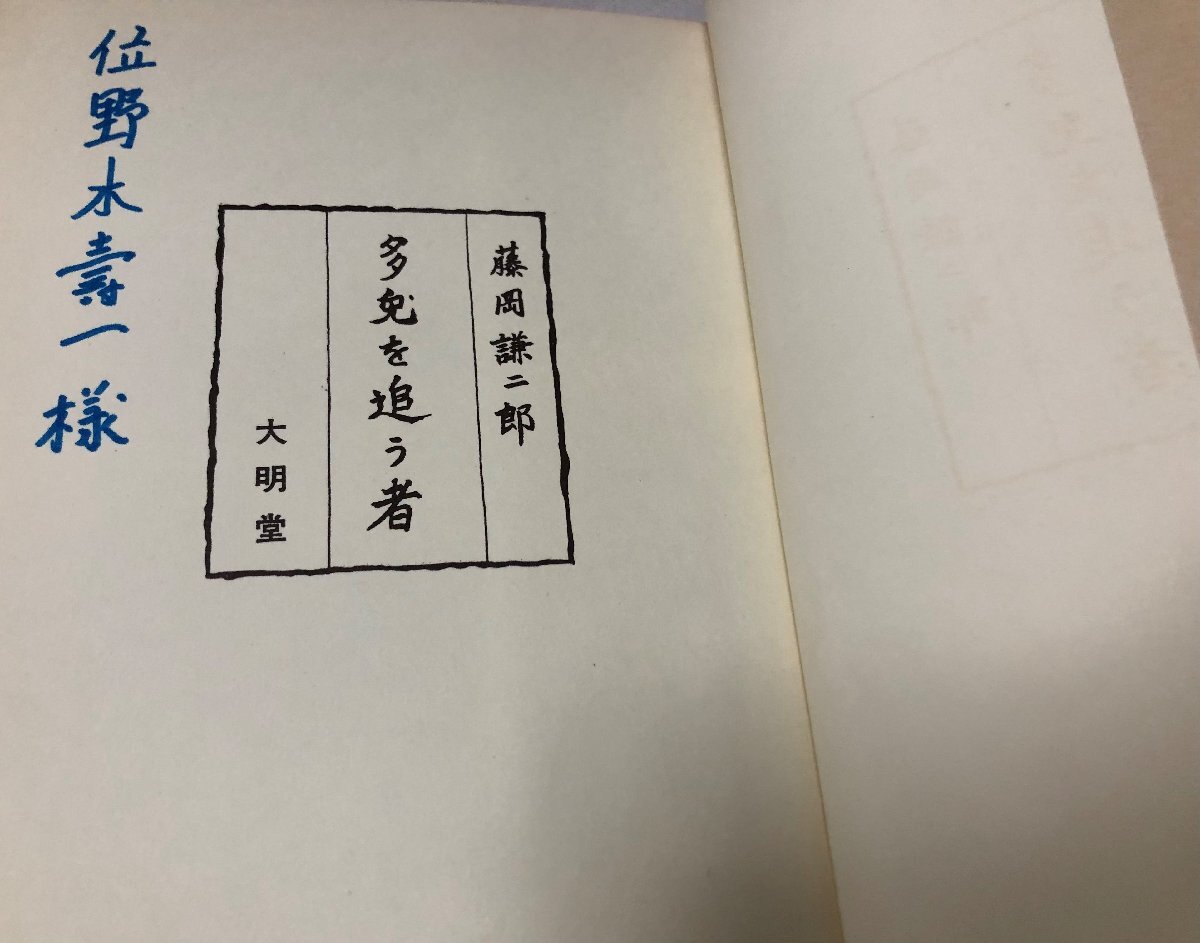 藤岡謙二郎
多兎を追う者
大明堂
位野木壽一様